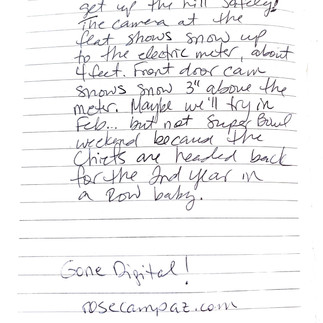 get up the hill safely!
The camera at the
feat shows snow up
to the electric meter, about
4 feet. Front door cam
shows snow 3" above the
meter. Maybe we'll try in
Feb... but not Super Bowl
weekend becaus the
Chiefs are headed back
for the 2nd year in
a row baby.
Gone Digital!
rosecampaz.com